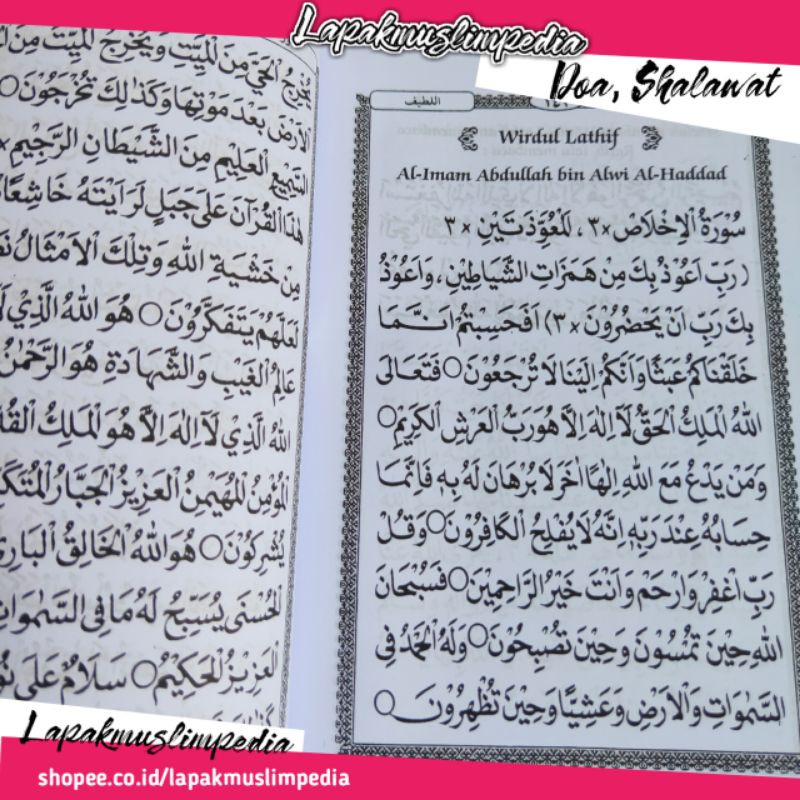 Lapakmuslimpedia
Doa, Shalawat
اللطيف
Wirdul Lathif
Al-Imam Abdullah bin Alwi Al-Haddad
سُوْرَةُ اْلإِخْلَاصْ ×٣ ، اَلْمُعَوَّذَتَيْنِ ×٣
( رَبِّ اَعُوْذُ بِكَ مِنْ هَمَزَاتِ الشَّيَاطِيْنِ ، وَاَعُوْذُ
بِكَ رَبِّ اَنْ يَحْضُرُوْنَ ×٣) اَفَحَسِبْتُمْ اَنَّمَا
خَلَقْنَاكُمْ عَبَثًا وَاَنَّكُمْ اِلَيْنَا لَا تُرْجَعُوْنَ ○ فَتَعَالَى
اللهُ الْمَلِكُ الْحَقُّ لَآ اِلٰهَ اِلَّا هُوَ رَبُّ الْعَرْشِ الْكَرِيْمِ ○
وَمَنْ يَدْعُ مَعَ اللهِ اِلٰهًا اٰخَرَ لَا بُرْهَانَ لَهُ بِهٖ فَاِنَّمَا
حِسَابُهُ عِنْدَ رَبِّهٖ اِنَّهُ لَا يُفْلِحُ الْكَافِرُوْنَ ○ وَقُلْ
رَبِّ اغْفِرْ وَارْحَمْ وَاَنْتَ خَيْرُ الرَّاحِمِيْنَ ○ فَسُبْحَانَ
اللهِ حِيْنَ تُمْسُوْنَ وَحِيْنَ تُصْبِحُوْنَ ○ وَلَهُ الْحَمْدُ فِى
السَّمٰوَاتِ وَالْاَرْضِ وَعَشِيًّا وَحِيْنَ تُظْهِرُوْنَ ○
يُخْرِجُ الْحَيَّ مِنَ الْمَيِّتِ وَيُخْرِجُ الْمَيِّتَ مِنَ
الْاَرْضَ بَعْدَ مَوْتِهَا وَكَذٰلِكَ تُخْرَجُوْنَ ○
السَّمِيْعِ الْعَلِيْمِ مِنَ الشَّيْطَانِ الرَّجِيْمِ
هٰذَا الْقُرْآنَ عَلَى جَبَلٍ لَرَاَيْتَهُ خَاشِعًا
مِنْ خَشْيَةِ اللهِ وَتِلْكَ الْاَمْثَالُ
لَعَلَّهُمْ يَتَفَكَّرُوْنَ ○ هُوَ اللهُ الَّذِيْ
عَالِمُ الْغَيْبِ وَالشَّهَادَةِ هُوَ الرَّحْمٰنُ
اللهُ الَّذِيْ لَآ اِلٰهَ اِلَّا هُوَ الْمَلِكُ
الْمُؤْمِنُ الْمُهَيْمِنُ الْعَزِيْزُ الْجَبَّارُ
يُشْرِكُوْنَ ○ هُوَ اللهُ الْخَالِقُ
الْحُسْنَى يُسَبِّحُ لَهُ مَا فِى السَّمٰوَاتِ
الْعَزِيْزُ الْحَكِيْمُ ○ سَلَامٌ عَلَى
Lapakmuslimpedia
shopee.co.id/lapakmuslimpedia